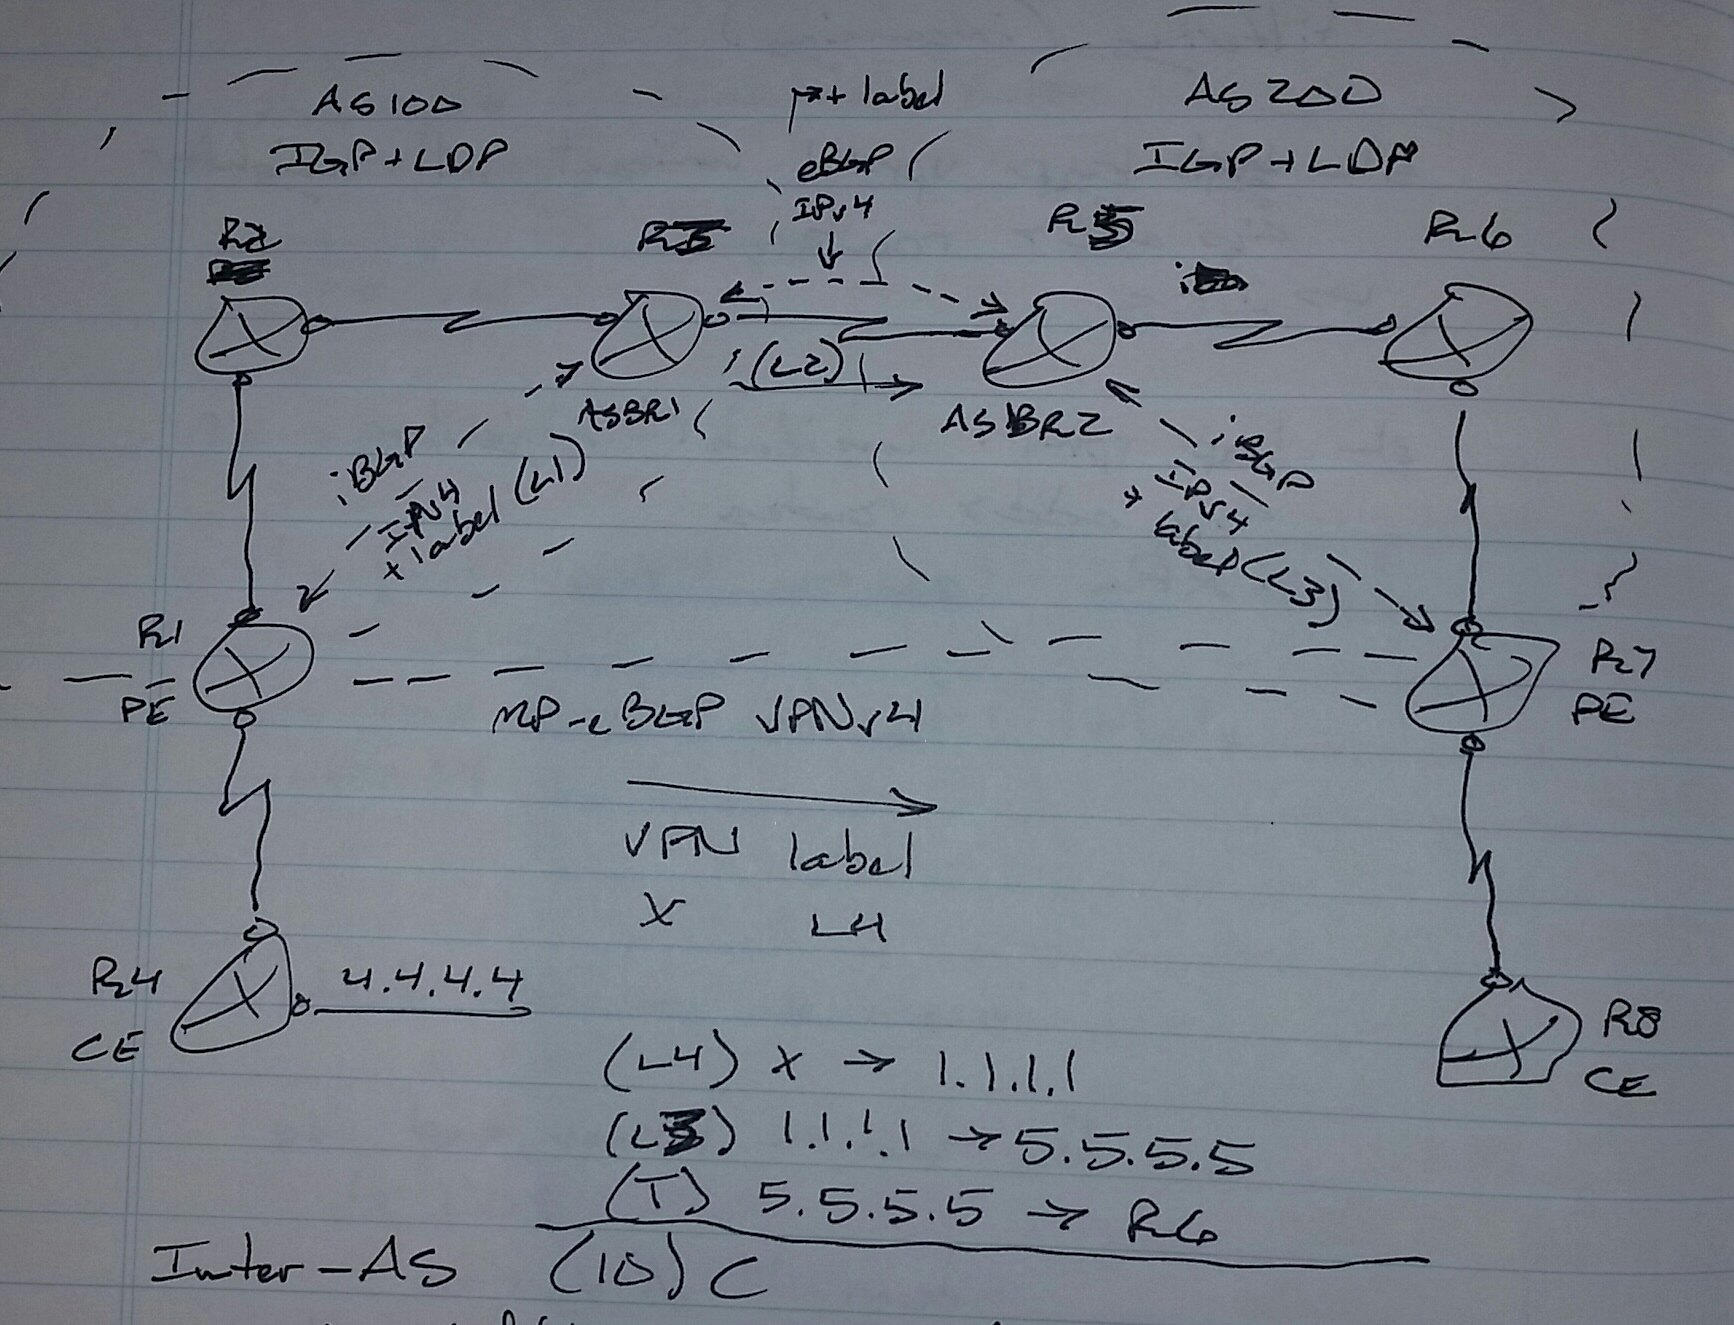 AS100
IGP+LDP
+ label
eBGP
IPv4
AS200
IGP+LDP
R2
R5
R6
ASBR1
(L2)
ASBR2
iBGP
IPv4
+ label (L1)
iBGP
IPv4
+ label (L3)
R1
PE
R7
PE
MP-eBGP VPNv4
VPN label
X L4
R4
CE
4.4.4.4
R8
CE
(L4) X → 1.1.1.1
(L3) 1.1.1.1 → 5.5.5.5
(T) 5.5.5.5 → R6
Inter-AS (10) C